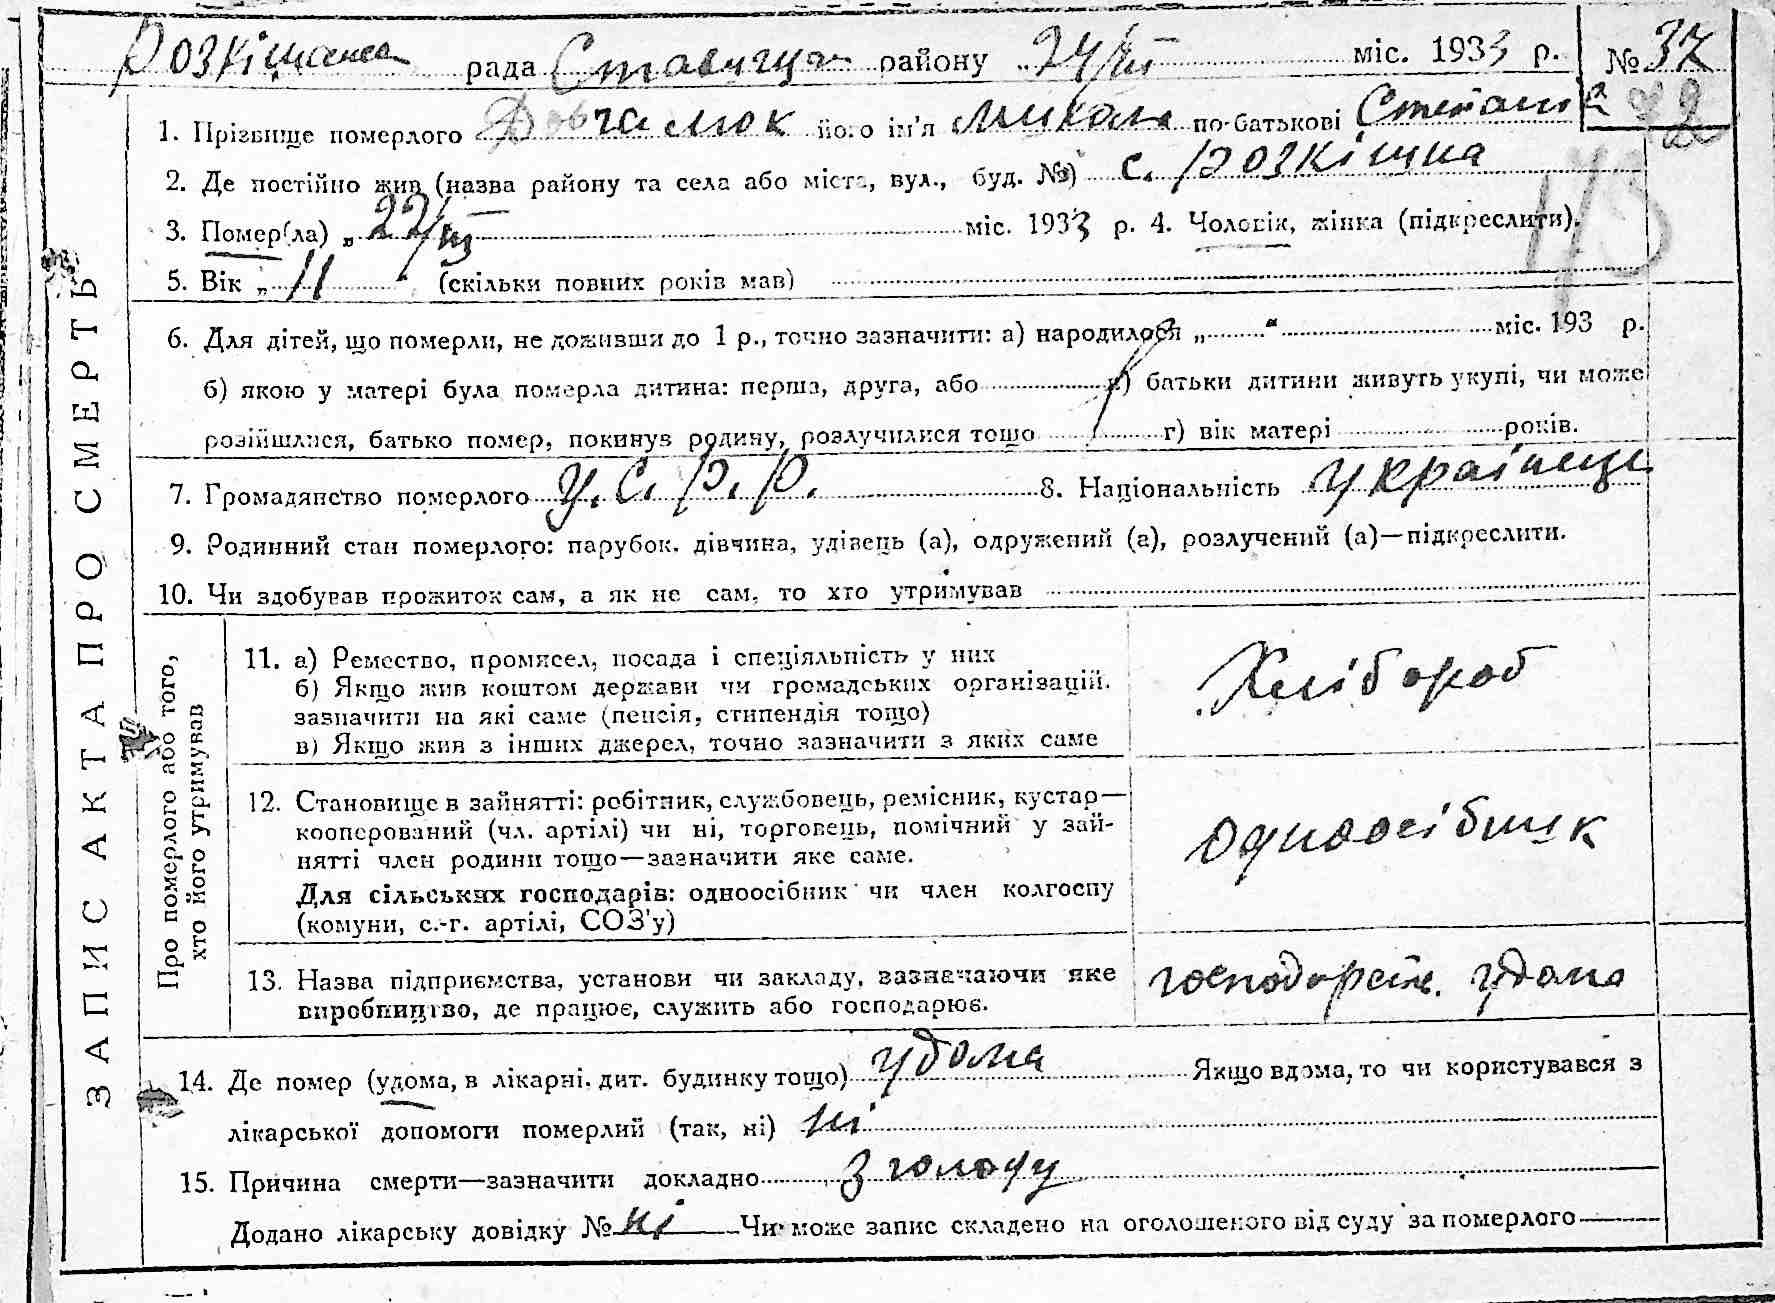 Розкішна рада Ставищан району „24/III міс. 1933 р. № 37
1. Прізвище померлого Довгалюк його ім'я Микола по-батькові Степана
2. Де постійно жив (назва району та села або міста, вул., буд. №) с. Розкішна
3. Помер(ла) „ 22/III міс. 1933 р. 4. Чоловік, жінка (підкреслити).
5. Вік „ 11 (скільки повних років мав)
6. Для дітей, що померли, не доживши до 1 р., точно зазначити: а) народилося „ “ міс. 193 р.
б) якою у матері була померла дитина: перша, друга, або в) батьки дитини живуть укупі, чи може
розійшлися, батько помер, покинув родину, розлучилися тощо г) вік матері років.
7. Громадянство померлого У.С.Р.Р. 8. Національність Українець
9. Родинний стан померлого: парубок, дівчина, удівець (а), одружений (а), розлучений (а)—підкреслити.
10. Чи здобував прожиток сам, а як не сам, то хто утримував
ЗАПИС АКТА ПРО СМЕРТЬ
Про померлого або того,
хто його утримував
11. а) Ремество, промисел, посада і спеціяльність у них
б) Якщо жив коштом держави чи громадських організацій,
зазначити на які саме (пенсія, стипендія тощо)
в) Якщо жив з інших джерел, точно зазначити з яких саме
Хлібороб
12. Становище в зайнятті: робітник, службовець, ремісник, кустар—
кооперований (чл. артілі) чи ні, торговець, помічний у зай-
нятті член родини тощо—зазначити яке саме.
Для сільських господарів: одноосібник чи член колгоспу
(комуни, с.-г. артілі, СОЗ'у)
одноосібник
13. Назва підприємства, установи чи закладу, зазначаючи яке
виробництво, де працює, служить або господарює.
господарств. удома
14. Де помер (удома, в лікарні, дит. будинку тощо) удома Якщо вдома, то чи користувався з
лікарської допомоги померлий (так, ні) ні
15. Причина смерти—зазначити докладно з голоду
Додано лікарську довідку № ні Чи може запис складено на оголошеного від суду за померлого